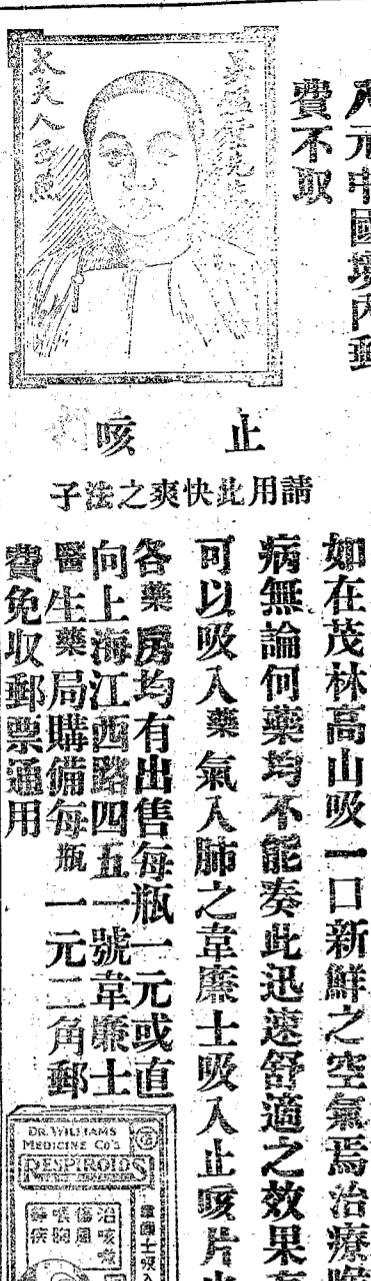 元中國境內郵
費不取
夫人玉照
止咳
請用此快爽之法子
如在茂林高山吸一口新鮮之空氣焉治療喉
病無論何藥均不能奏此迅速舒適之效果
可以吸入藥氣入肺之韋廉士吸入止咳片
各藥房均有出售每瓶一元或直
向上海江西路四五一號韋廉士
醫生藥局購備每瓶一元二角郵
費免收郵票通用
DR. WILLIAMS
MEDICINE CO'S
RESPIROIDS
韋廉士吸入
治咳嗽
傷風
喉胸